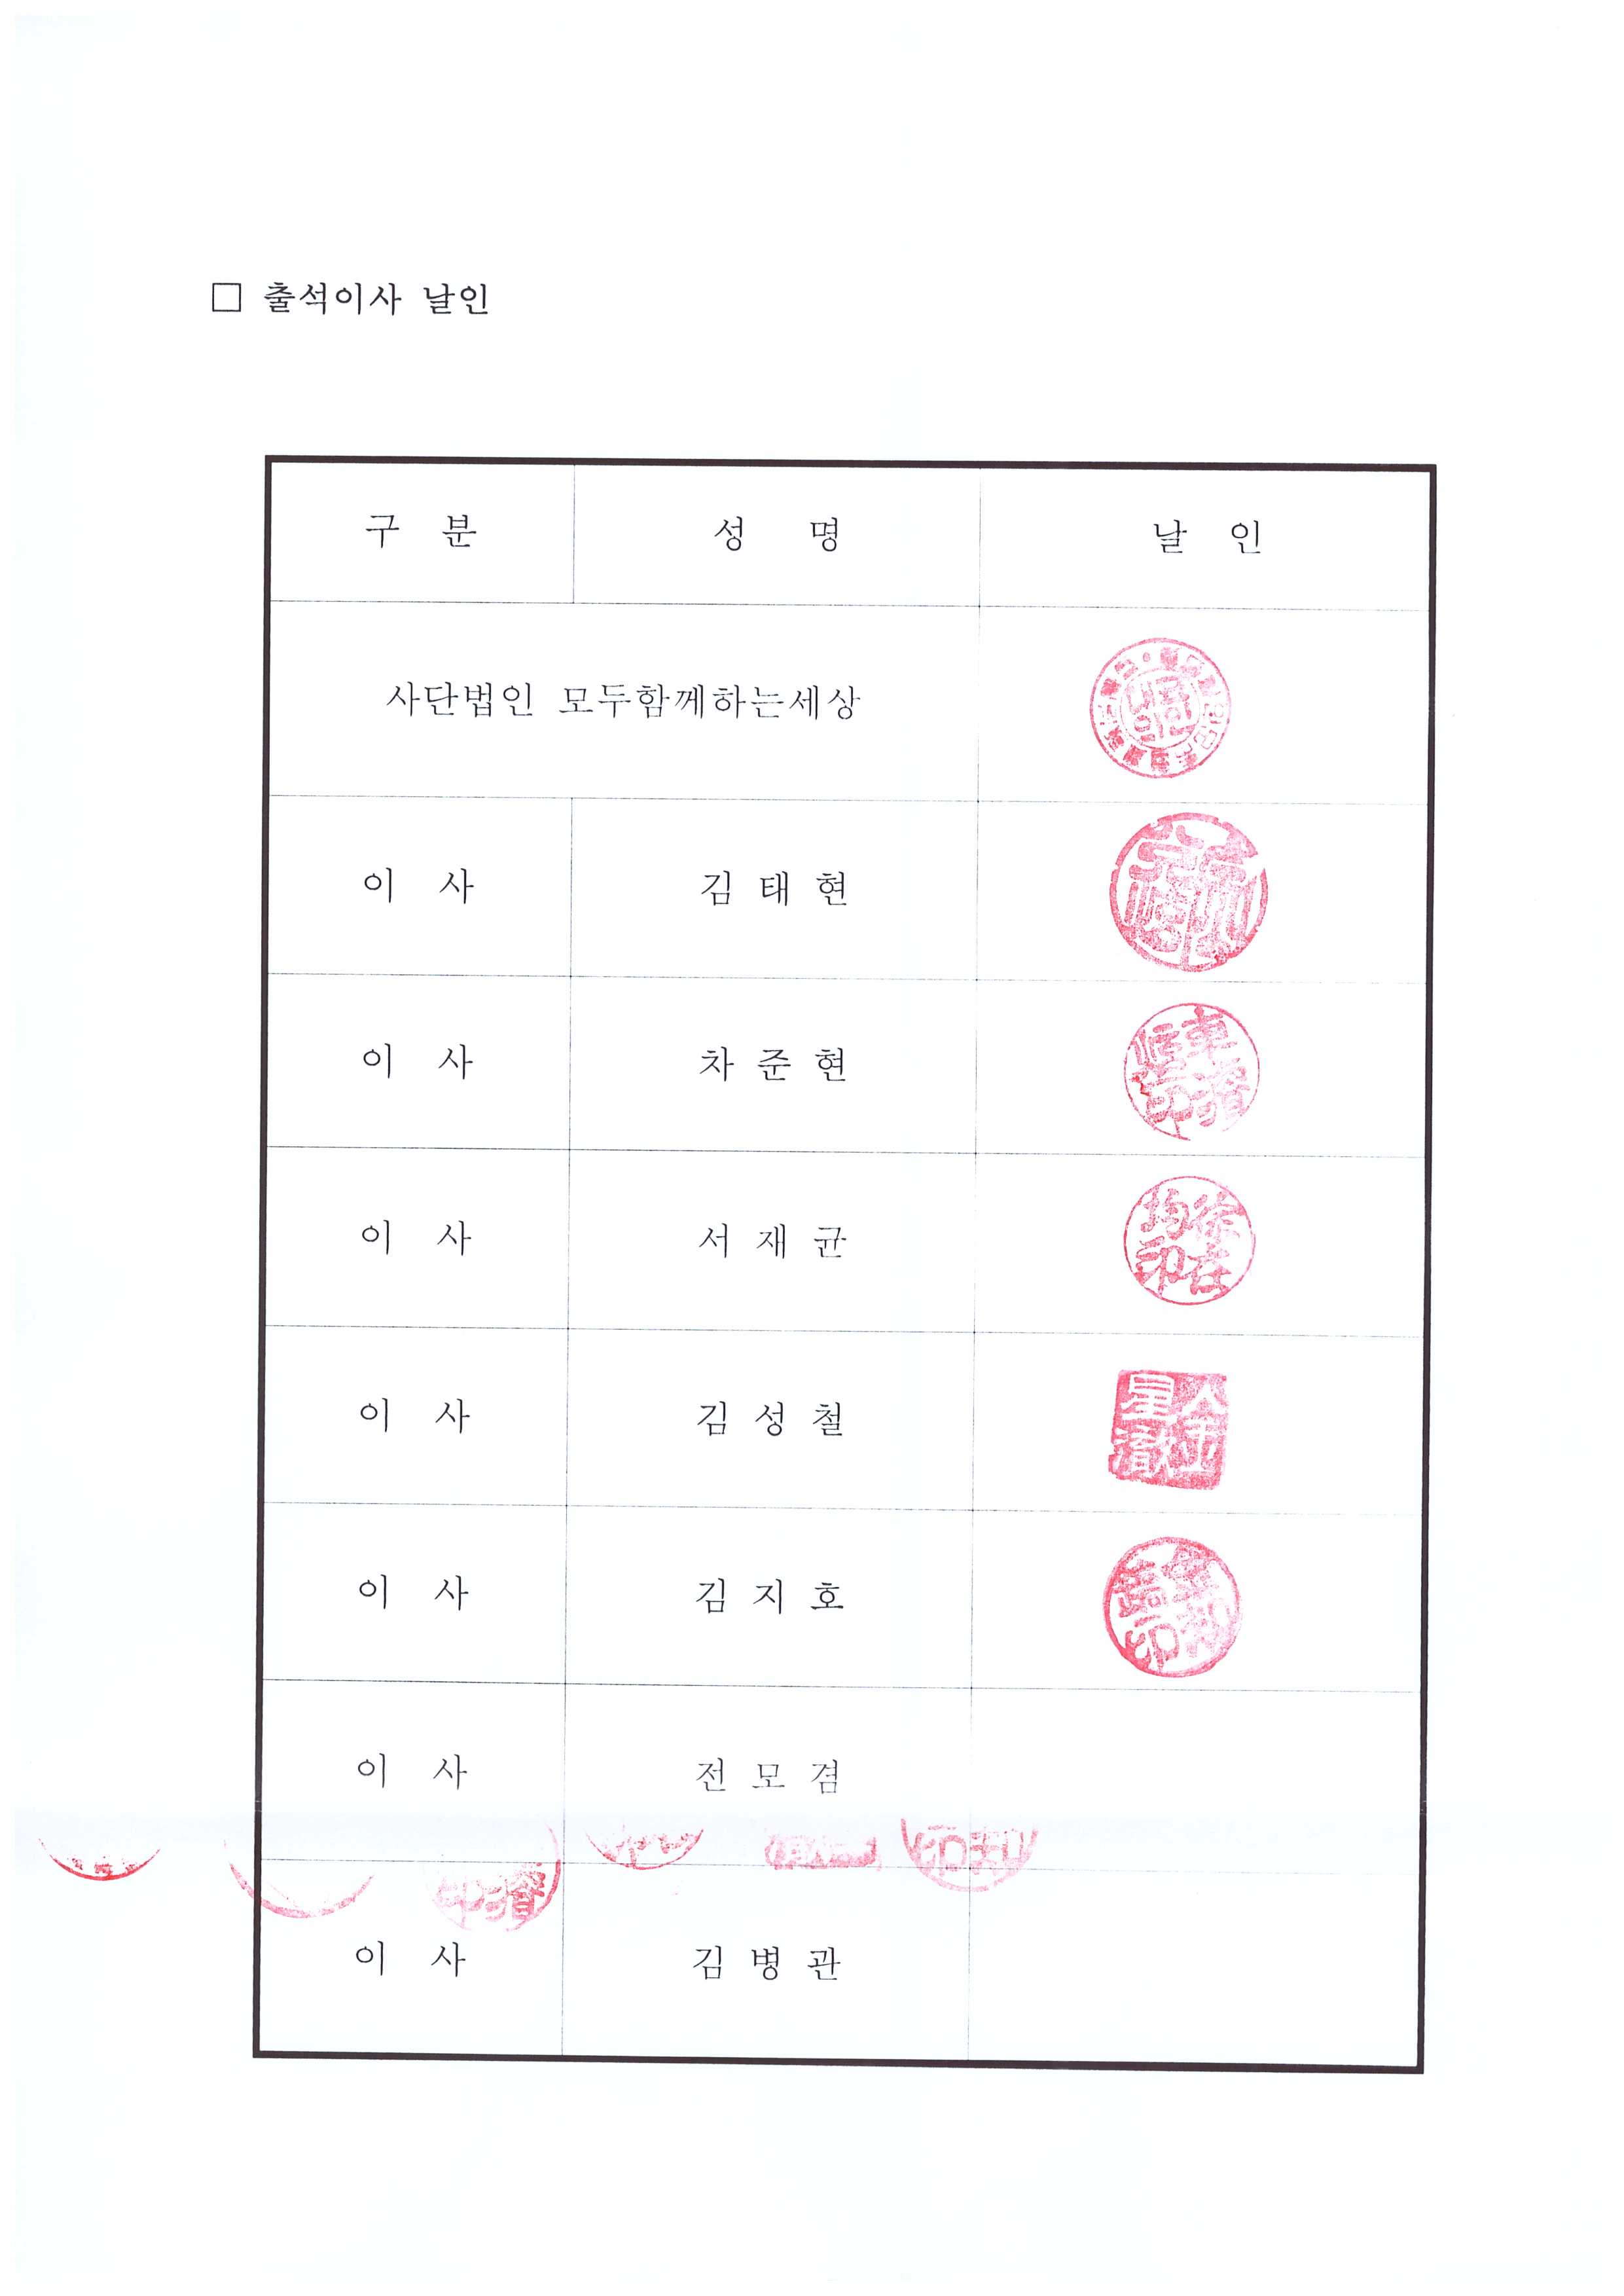 □ 출석이사 날인
구 분 성 명 날 인
사단법인 모두함께하는세상
이 사 김 태 현
이 사 차 준 현
이 사 서 재 균
均徐
印在
이 사 김 성 철
星金
澈
이 사 김 지 호
이 사 전 모 겸
이 사 김 병 관